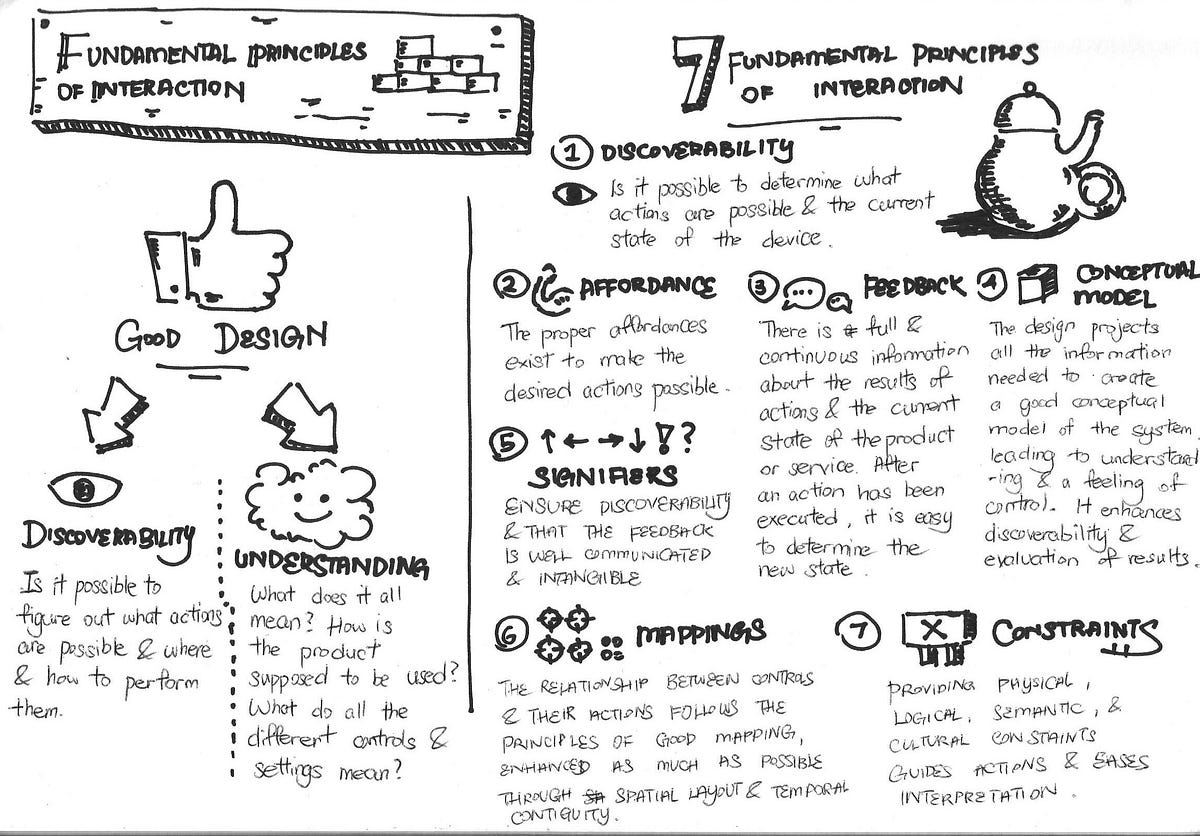 FUNDAMENTAL PRINCIPLES
OF INTERACTION
GOOD DESIGN
DISCOVERABILITY
Is it possible to
figure out what actions
are possible & where
& how to perform
them.
UNDERSTANDING
What does it all
mean? How is
the product
supposed to be used?
What do all the
different controls &
settings mean?
7 FUNDAMENTAL PRINCIPLES
OF INTERACTION
1 DISCOVERABILITY
Is it possible to determine what
actions are possible & the current
state of the device.
2 AFFORDANCE
The proper affordances
exist to make the
desired actions possible.
3 FEEDBACK
There is full &
continuous information
about the results of
actions & the current
state of the product
or service. After
an action has been
executed, it is easy
to determine the
new state.
4 CONCEPTUAL
MODEL
The design projects
all the information
needed to create
a good conceptual
model of the system,
leading to understand
-ing & a feeling of
control. It enhances
discoverability &
evaluation of results.
5 ↑ ← → ↓ ! ?
SIGNIFIERS
ENSURE DISCOVERABILITY
& THAT THE FEEDBACK
IS WELL COMMUNICATED
& INTANGIBLE
6 MAPPINGS
THE RELATIONSHIP BETWEEN CONTROLS
& THEIR ACTIONS FOLLOWS THE
PRINCIPLES OF GOOD MAPPING,
ENHANCED AS MUCH AS POSSIBLE
THROUGH SPATIAL LAYOUT & TEMPORAL
CONTIGUITY.
7 X CONSTRAINTS
PROVIDING PHYSICAL,
LOGICAL, SEMANTIC, &
CULTURAL CONSTAINTS
GUIDES ACTIONS & EASES
INTERPRETATION.